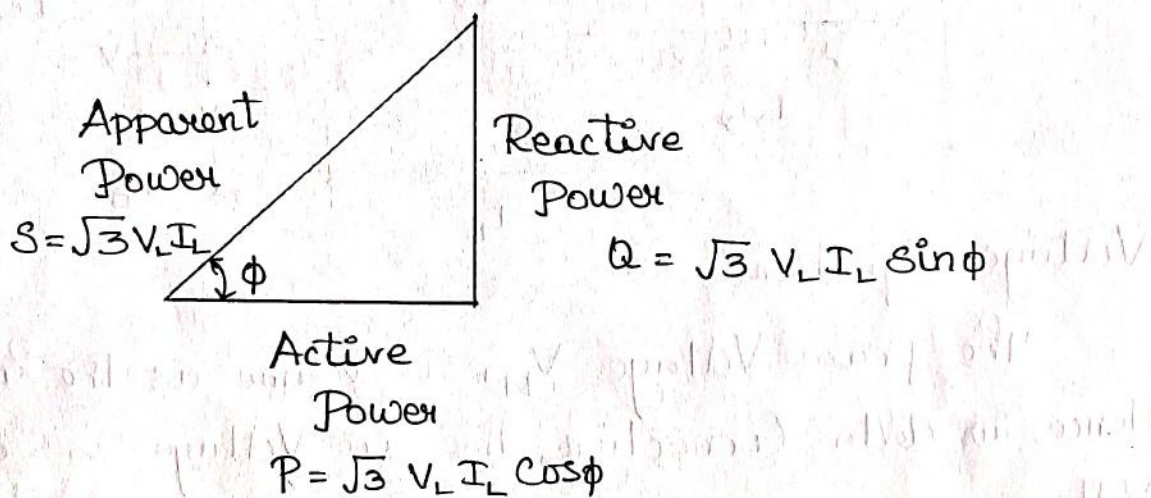 Apparent
Power
S=√3 V_L I_L
ϕ
Reactive
Power
Q = √3 V_L I_L Sinϕ
Active
Power
P = √3 V_L I_L Cosϕ